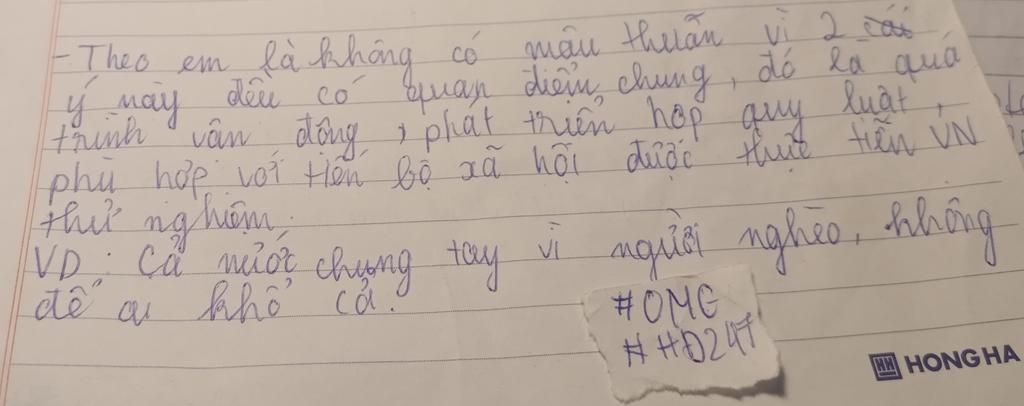 - Theo em là không có mâu thuẫn vì 2
ý này đều có quan điểm chung, đó là quá
trình vân đông, phát triển hợp quy luật,
phù hợp với tiến bộ xã hội được thực tiễn VN
thử nghiệm.
VD: Cả nước chung tay vì người nghèo, không
để ai khổ cả.
#OMG
#HĐ247
HONG HA